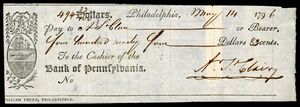 494 Dollars. Philadelphia, May 14 1796
Pay to A. St. Clair or Bearer,
Four hundred ninety four Dollars 53 Cents.
To the Cashier of the
Bank of Pennsylvania.
No Ar. St. Clair
PHILADELPHIA.